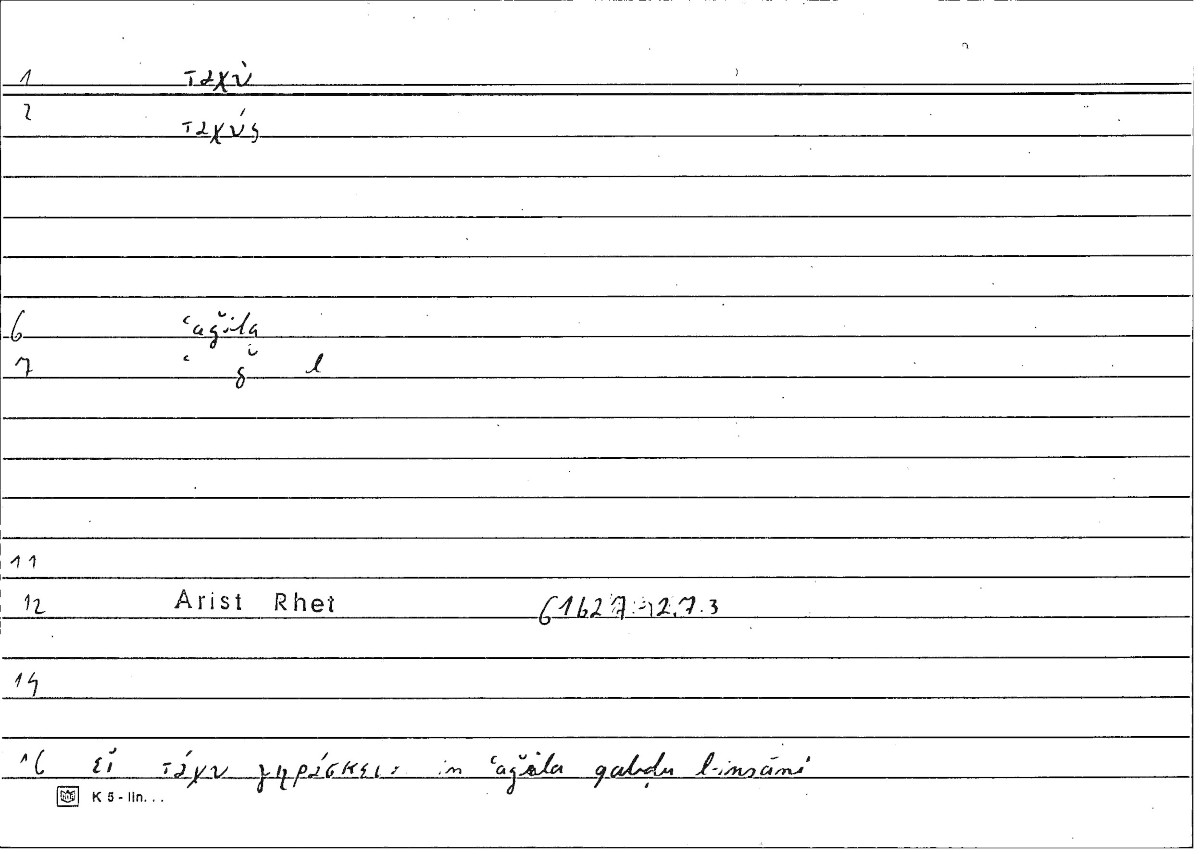 1 ταχὺ
2 ταχύς
6 ʿaǧila
7 ʿ ǧ i l
11
12 Arist Rhet 61b27 27.3
14
16 εἰ τάχυ γηράσκει: in ʿaǧila l-insāni
K 5 - lin...